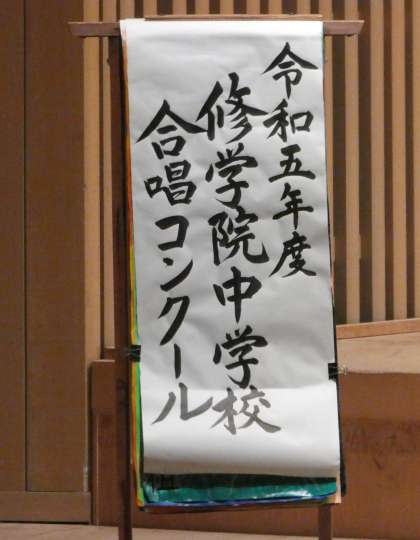 令和五年度
修学院中学校
合唱コンクール